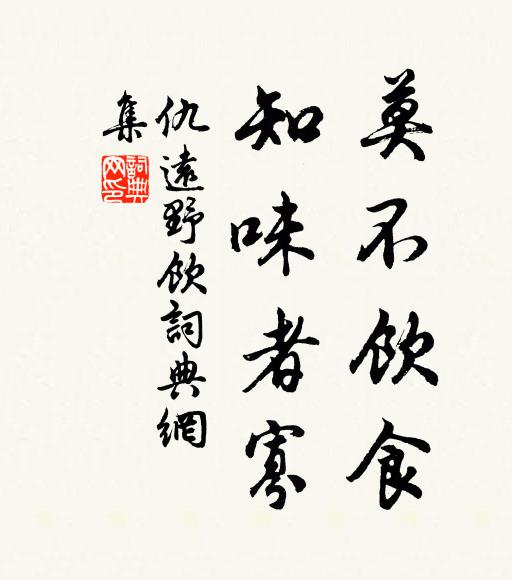 莫不飲食
知味者寡
仇遠野飲詞典網
集
詞典
网印